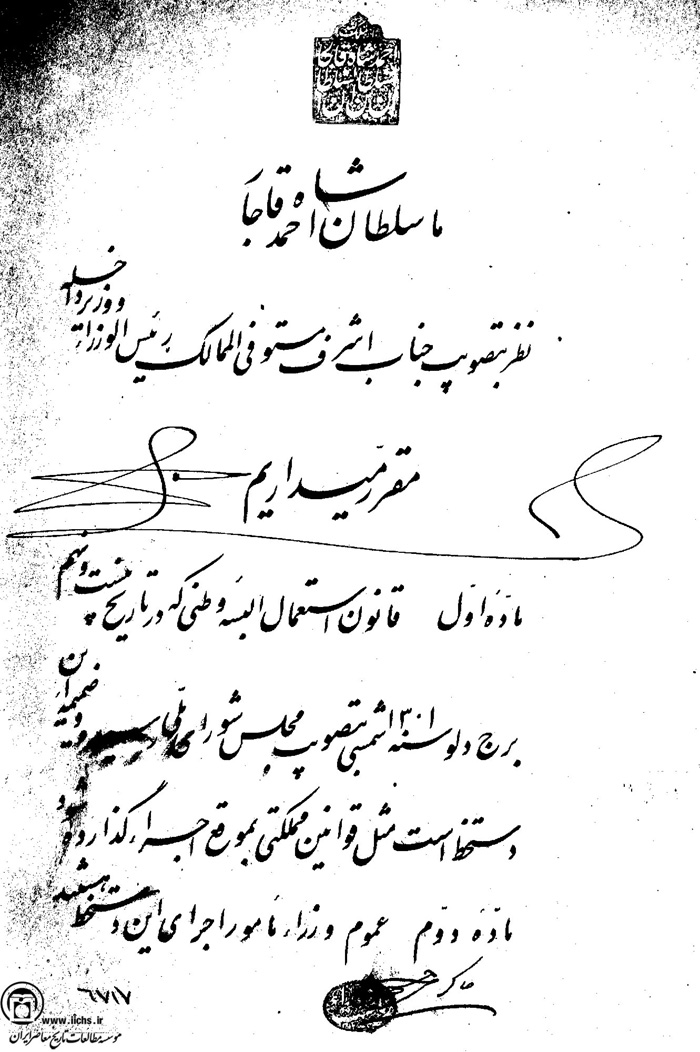 ما سلطان احمد شاه قاجار
نظر بتصویب جناب اشرف مستوفی الممالک رئیس الوزراء و وزیر داخله
مقرر میداریم
مادهٔ اول قانون استعمال البسهٔ وطنی که در تاریخ بیست و نهم
برج دلو سنهٔ ۱۳۰۱ شمسی بتصویب مجلس شورای ملی رسیده و ضمیمهٔ این
دستخط است مثل قوانین مملکتی بموقع اجراء گذارده شود
مادهٔ دوم عموم وزراء مأمور اجرای این دستخط هستند
۶۷۱۷
www.iichs.ir
موسسه مطالعات تاریخ معاصر ایران